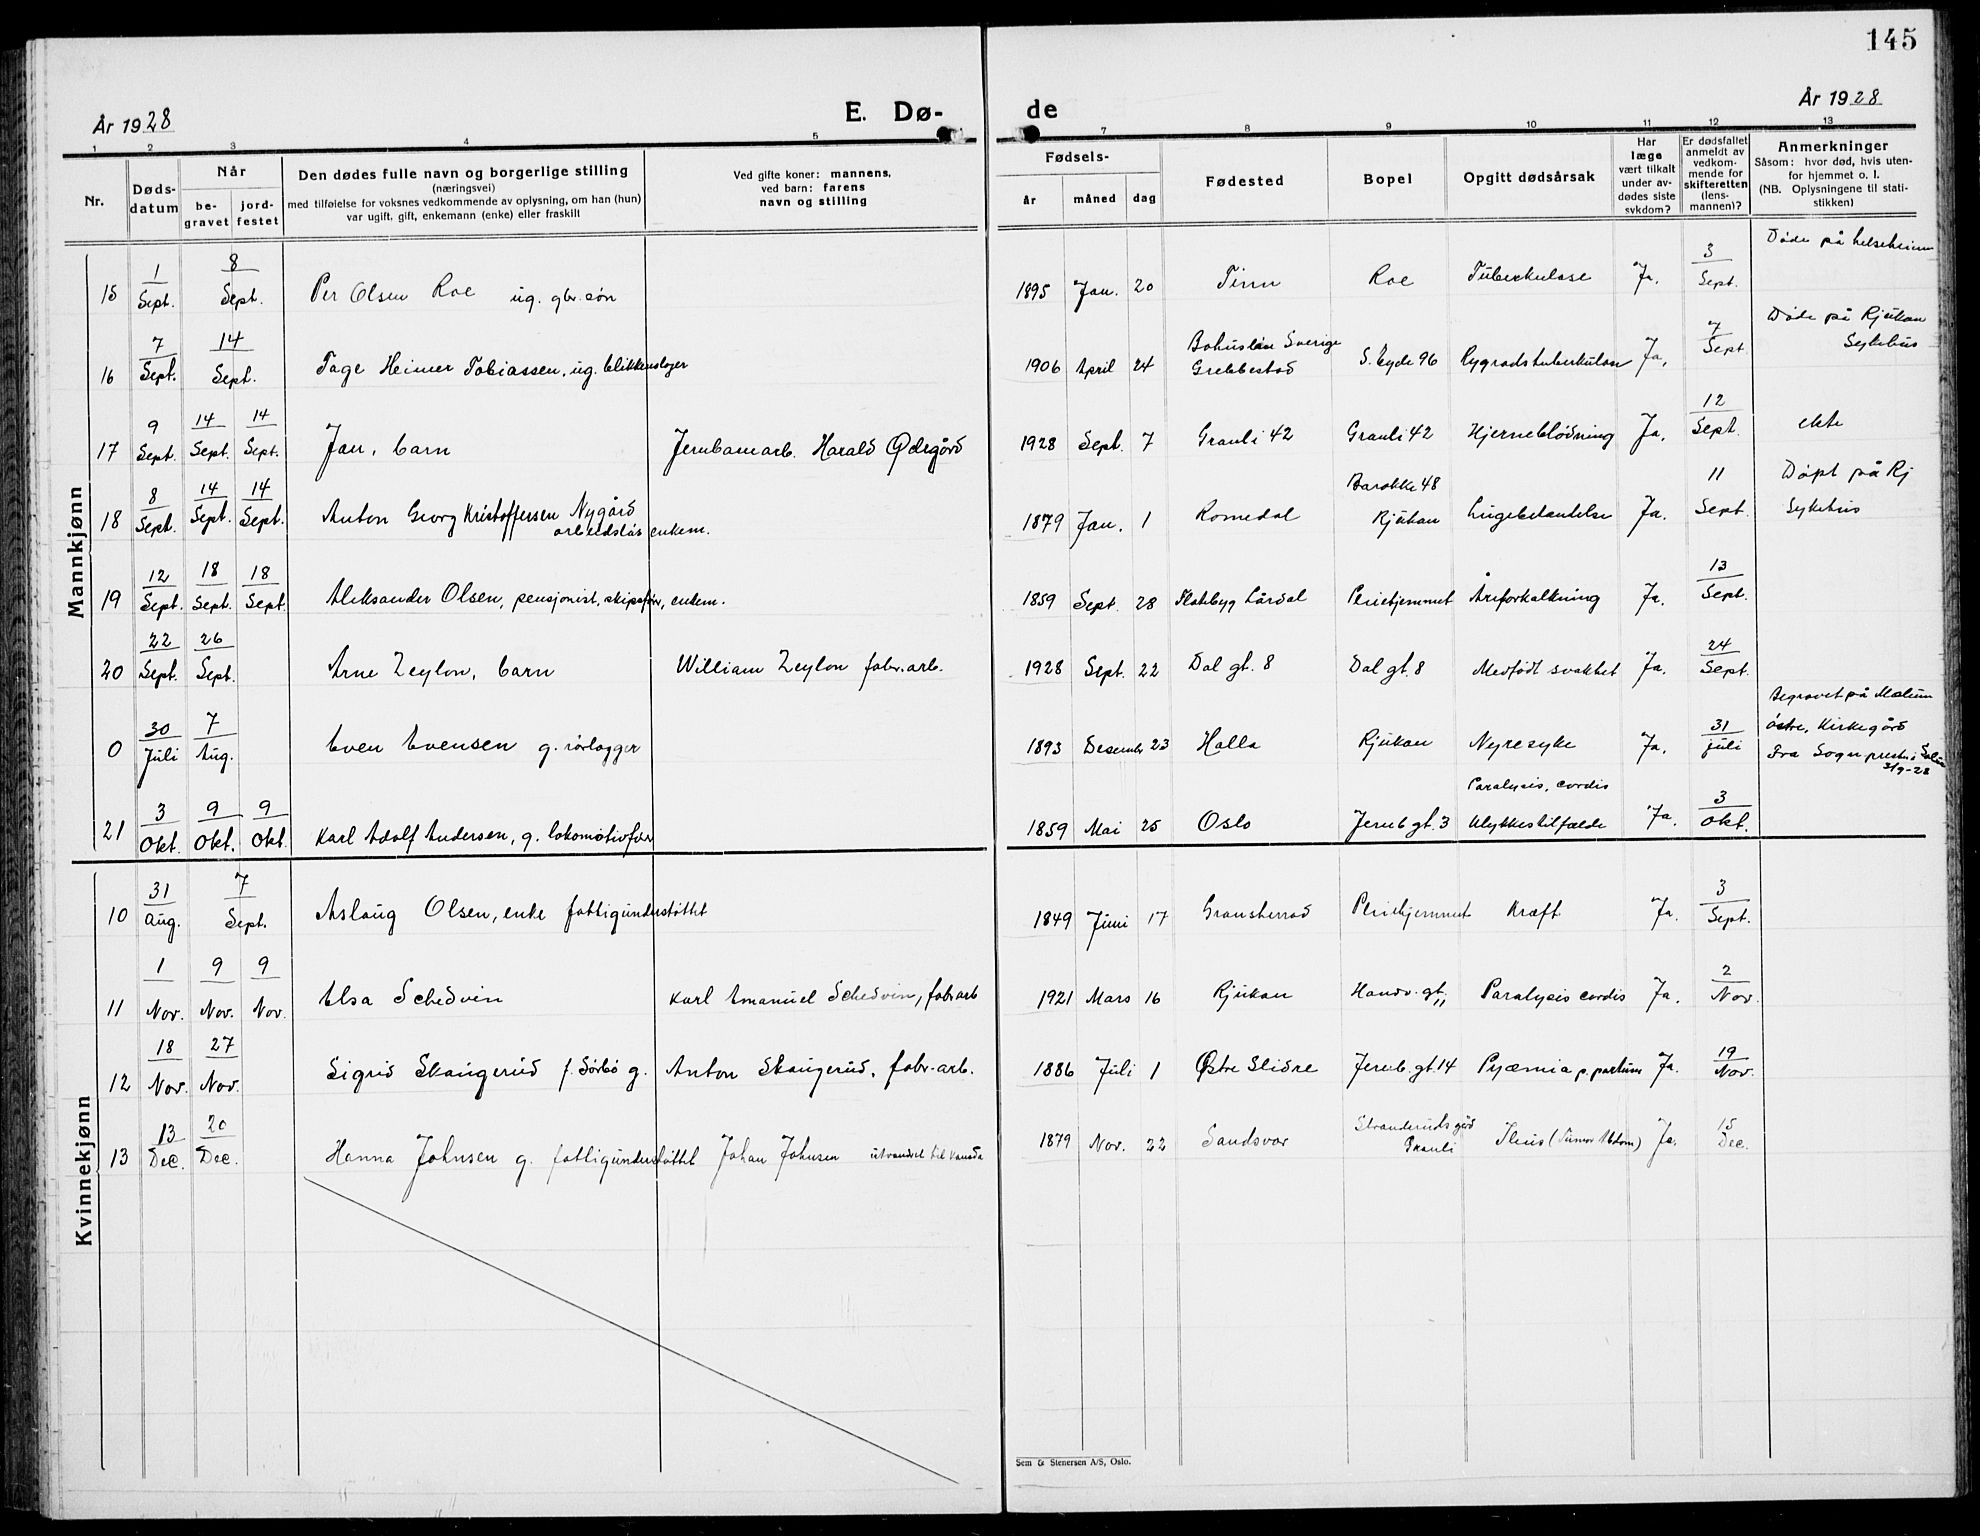 145
År 1928
E. Dø-
de
År 1928
1 2 3 4 5 7 8 9 10 11 12 13
Nr.
Døds-
datum
Når
be-
gravet
jord-
festet
Den dødes fulle navn og borgerlige stilling
(næringsvei)
med tilføielse for voksnes vedkommende av oplysning, om han (hun)
var ugift, gift, enkemann (enke) eller fraskilt
Ved gifte koner: mannens,
ved barn: farens
navn og stilling
Fødsels-
år måned dag
Fødested
Bopel
Opgitt dødsårsak
Har
læge
vært tilkalt
under av-
dødes siste
sykdom?
Er dødsfallet
anmeldt av
vedkom-
mende for
skifteretten
(lens-
mannen)?
Anmerkninger
Såsom: hvor død, hvis uten-
for hjemmet o. l.
(NB. Oplysningene til stati-
stikken)
Mannkjønn
15 1/Sept. 8/Sept. Per Olsen Roe ug. gbr. søn 1895 Jan. 20 Tinn Roe Tuberkulose Ja. 3/Sept. Døde på helseheim
16 7/Sept. 14/Sept. Tage Heimer Tobiassen, ug. blikkenslager 1906 April 24 Bohuslän Sverige Grebbestad S. Eyde 96 Rygradstuberkulose Ja, 7/Sept Døde på Rjukan Sykehus
17 9 Sept. 14/Sept. 14/Sept. Jan, barn Jernbanearb. Harald Ødegård 1928 Sept. 7 Grauli 42 Grauli 42 Hjerneblødning Ja, 12/Sept. ekte
18 8/Sept. 14/Sept. 14/Sept. Anton Georg Kristoffersen Nygård arbeidsløs enkem. 1879 Jan. 1 Romedal Barakke 48 Rjukan Lungebetendelse Ja. 11 Sept. Døpt på Rj Sykehus
19 12/Sept. 18/Sept. 18/Sept. Aleksander Olsen, pensjonist, skipsfør, enkem. 1859 Sept. 28 Lårdal Pleiehjemmet Åreforkalkning Ja. 13/Sept.
20 22/Sept. 26/Sept. Arne Zeylon, barn William Zeylon fabr. arb. 1928 Sept. 22 Dal gt. 8 Dal gt. 8 Medfødt svakhet Ja. 24/Sept.
0 30/Juli 7/Aug. Even Evensen g. rørlegger 1893 Desember 23 Holla Rjukan Nyresyke Ja, 31/juli Begravet på Mælum østre, Kirkegård Fra Sogneprest i 3/9-28
21 3/Okt. 9/Okt. 9/Okt. Karl Adolf Andersen, g. lokomotivfør 1859 Mai 25 Oslo Jernb gt. 3 Paralysis, cordis Ulykkestilfælde Ja. 3/Okt.
Kvinnekjønn
10 31/Aug. 7/Sept. Aslaug Olsen, enke fattigunderstøttet 1849 Juni 17 Gransherrad Pleiehjemmet Kræft Ja. 3/Sept.
11 1/Nov. 9/Nov. 9/Nov. Elsa Schedvin Karl Emanuel Schedvin, fabr arb 1921 Mars 16 Rjukan Handv. gt. 11 Paralysis cordis Ja. 2/Nov.
12 18/Nov. 27/Nov. Sigrid Skaugerud f. Sørbø g. Anton Skaugerud, fabr. arb. 1886 Juli 1 Østre Slidre Jernb. gt. 14 Pyæmia p. partum Ja. 19/Nov.
13 13/Dec. 20/Dec. Hanna Johnsen g. fattigunderstøttet Johan Johnsen utvandret til Kanada 1879 Nov. 22 Sandsvær Stranderuds gård Grauli Ileus (Tumor Abdom) Ja. 15/Dec.
Sem & Stenersen A/S, Oslo.